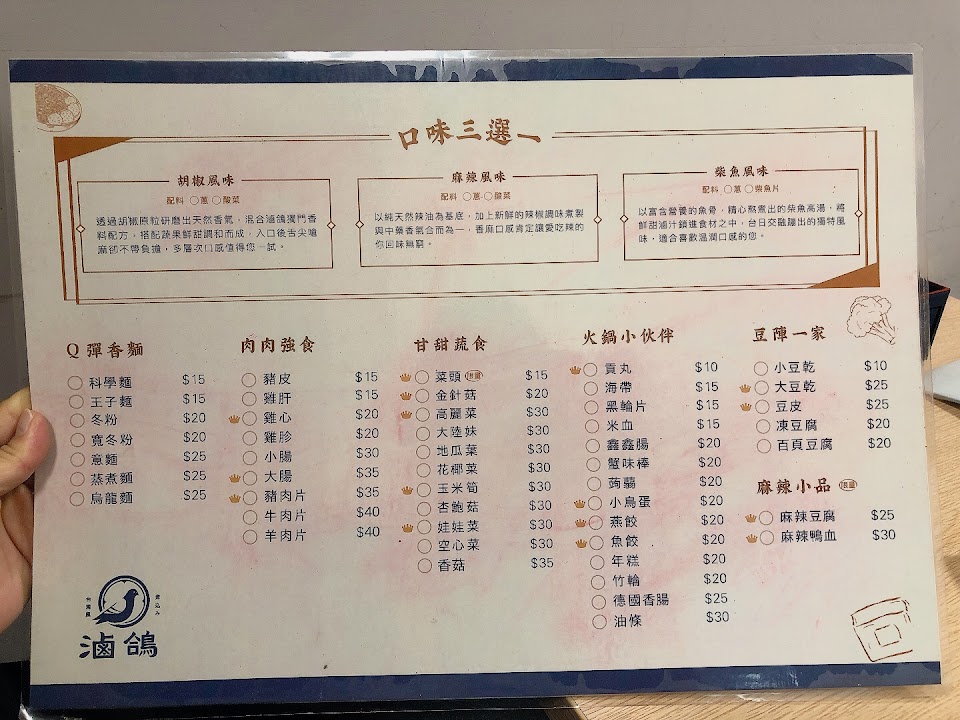 口味三選一
胡椒風味
配料 ○蔥 ○酸菜
透過胡椒原粒研磨出天然香氣，混合滷鴿獨門香
料配方，搭配蔬果鮮甜調和而成，入口後舌尖嗆
麻卻不帶負擔，多層次口感值得您一試。
麻辣風味
配料 ○蔥 ○酸菜
以純天然辣油為基底，加上新鮮的辣椒調味煮製
與中藥香氣合而為一，香麻口感肯定讓愛吃辣的
你回味無窮。
柴魚風味
配料 ○蔥 ○柴魚片
以富含營養的魚骨，精心熬煮出的柴魚高湯，將
鮮甜滷汁鎖進食材之中，台日交融蹦出的獨特風
味，適合喜歡溫潤口感的您。
Q彈香麵
科學麵 $15
王子麵 $15
冬粉 $20
寬冬粉 $20
意麵 $25
蒸煮麵 $25
烏龍麵 $25
肉肉強食
豬皮 $15
雞肝 $15
雞心 $20
雞胗 $20
小腸 $30
大腸 $35
豬肉片 $35
牛肉片 $40
羊肉片 $40
甘甜蔬食
菜頭 限量 $15
金針菇 $20
高麗菜 $30
大陸妹 $30
地瓜葉 $30
花椰菜 $30
玉米筍 $30
杏鮑菇 $30
娃娃菜 $30
空心菜 $30
香菇 $35
火鍋小伙伴
貢丸 $10
海帶 $15
黑輪片 $15
米血 $15
鑫鑫腸 $20
蟹味棒 $20
蒟蒻 $20
小鳥蛋 $20
燕餃 $20
魚餃 $20
年糕 $20
竹輪 $20
德國香腸 $25
油條 $30
豆陣一家
小豆乾 $10
大豆乾 $25
豆皮 $25
凍豆腐 $20
百頁豆腐 $20
麻辣小品 限量
麻辣豆腐 $25
麻辣鴨血 $30
台灣風
煮込み
滷鴿